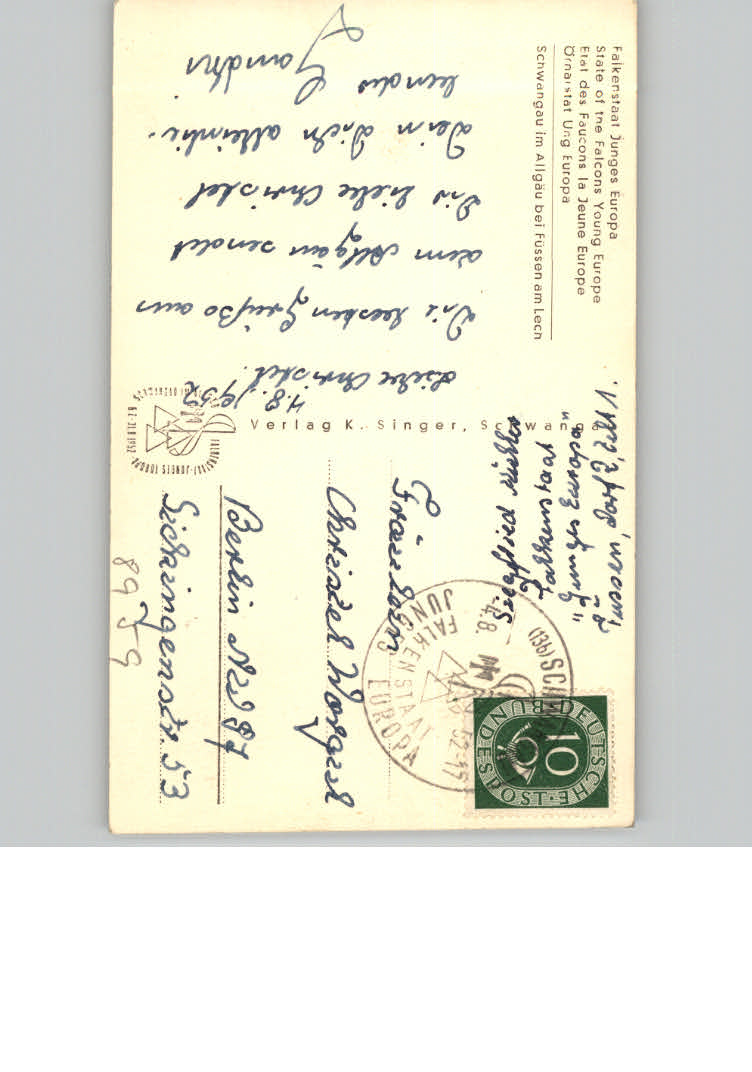 Falkenstaat Junges Europa
State of the Falcons Young Europe
Etat des Faucons la Jeune Europe
Örnarstat Ung Europa
Schwangau im Allgäu bei Füssen am Lech
4.8.1952
Liebe Christel.
Die besten Grüße aus
dem Allgäu sendet
Dir liebe Christel
Dein Dich
Verlag K. Singer, Schwangau
FALKENSTAAT JUNGES EUROPA
Falkenstaat
"Junges Europa"
(13b) SCHWANGAU
-4.8.52-17
FALKENSTAAT
JUNGES
EUROPA
DEUTSCHE
BUNDESPOST
10
Fräulein
Christel
Berlin NW 87
Sickingenstr. 53
8959